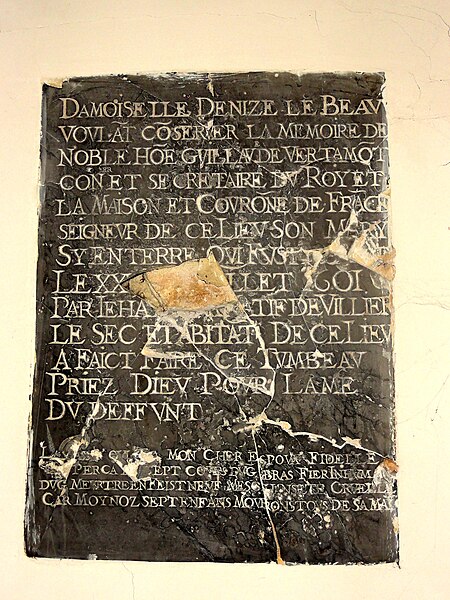 DAMOISELLE DENIZE LE BEAV
VOVLAT COSERVER LA MEMOIRE DE
NOBLE HOE GVILLAVDE VERTAMOT
CON ET SECRETAIRE DV ROY ET
LA MAISON ET COVRONE DE FRACE
SEIGNEVR DE CE LIEV SON MARY
SY ENTERRE QVI FVST
LE XX LLET
PAR IEHA ATIF DE VILLIER
LE SEC ET ABITAT DE CE LIEV
A FAICT FAIRE CE TVMBEAV
PRIEZ DIEV POVR LAME
DV DEFFVNT
MON CHER ESPOVX FIDELLE
PERCA EPT COVPS DVG BRAS FIER INHVMA
DVG MEVRTRE EN FEIST NEVF CRVELL
CAR MOY NOZ SEPT ENFANS MOVRONS TOVS DE SA MA